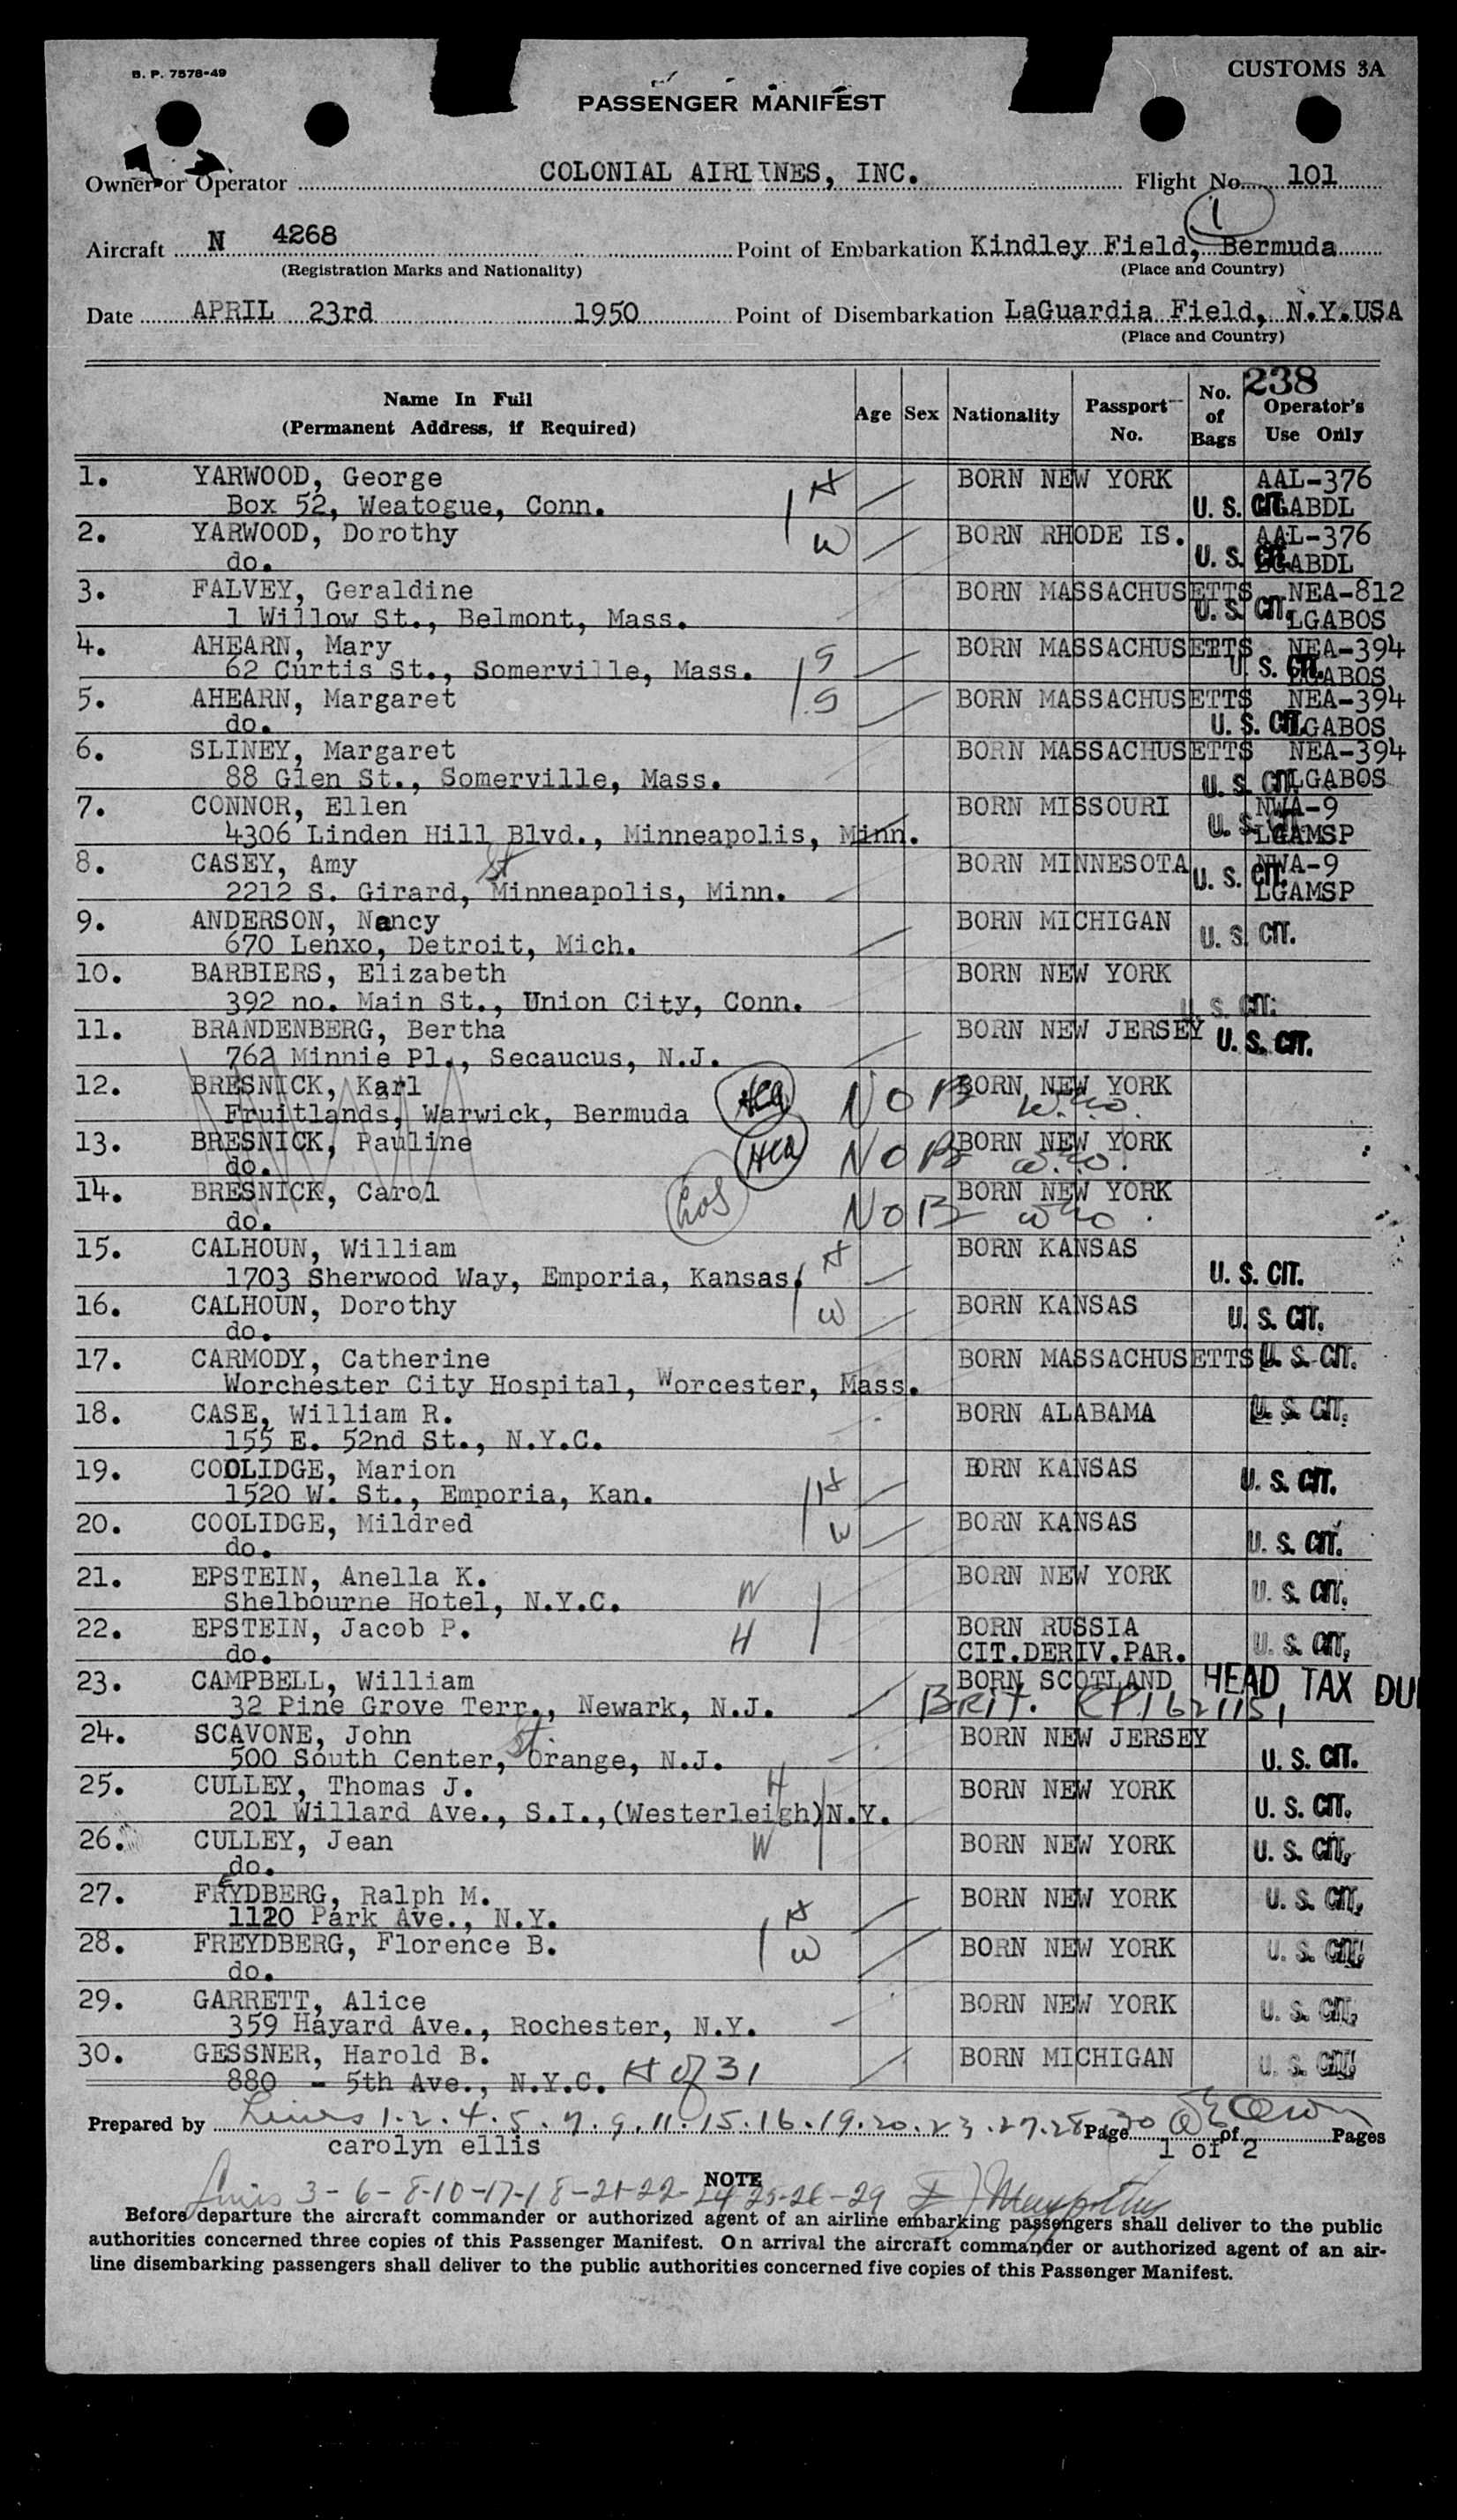 B. P. 7578-49
CUSTOMS 3A
PASSENGER MANIFEST
Owner or Operator COLONIAL AIRLINES, INC. Flight No. 101
1
Aircraft N 4268 Point of Embarkation Kindley Field, Bermuda
(Registration Marks and Nationality) (Place and Country)
Date APRIL 23rd 1950 Point of Disembarkation LaGuardia Field, N.Y.USA
(Place and Country)
238
Name In Full (Permanent Address, if Required) Age Sex Nationality Passport No. No. of Bags Operator's Use Only
1. YARWOOD, George H BORN NEW YORK AAL-376
Box 52, Weatogue, Conn. U. S. CIT. LGABDL
2. YARWOOD, Dorothy W BORN RHODE IS. AAL-376
do. U. S. CIT. LGABDL
3. FALVEY, Geraldine BORN MASSACHUSETTS NEA-812
1 Willow St., Belmont, Mass. U. S. CIT. LGABOS
4. AHEARN, Mary S BORN MASSACHUSETTS NEA-394
62 Curtis St., Somerville, Mass. U. S. CIT. LGABOS
5. AHEARN, Margaret S BORN MASSACHUSETTS NEA-394
do. U. S. CIT. LGABOS
6. SLINEY, Margaret BORN MASSACHUSETTS NEA-394
88 Glen St., Somerville, Mass. U. S. CIT. LGABOS
7. CONNOR, Ellen BORN MISSOURI NWA-9
4306 Linden Hill Blvd., Minneapolis, Minn. U. S. CIT. LGAMSP
8. CASEY, Amy BORN MINNESOTA NWA-9
2212 S. Girard, St Minneapolis, Minn. U. S. CIT. LGAMSP
9. ANDERSON, Nancy BORN MICHIGAN
670 Lenxo, Detroit, Mich. U. S. CIT.
10. BARBIERS, Elizabeth BORN NEW YORK
392 no. Main St., Union City, Conn. U. S. CIT.
11. BRANDENBERG, Bertha BORN NEW JERSEY
762 Minnie Pl., Secaucus, N.J. U. S. CIT.
12. BRESNICK, Karl NOB BORN NEW YORK
Fruitlands, Warwick, Bermuda
13. BRESNICK, Pauline NOB BORN NEW YORK
do.
14. BRESNICK, Carol NOB BORN NEW YORK
do.
15. CALHOUN, William H BORN KANSAS
1703 Sherwood Way, Emporia, Kansas. U. S. CIT.
16. CALHOUN, Dorothy W BORN KANSAS U. S. CIT.
do.
17. CARMODY, Catherine BORN MASSACHUSETTS U. S. CIT.
Worchester City Hospital, Worcester, Mass.
18. CASE, William R. BORN ALABAMA U. S. CIT.
155 E. 52nd St., N.Y.C.
19. COOLIDGE, Marion H BORN KANSAS U. S. CIT.
1520 W. St., Emporia, Kan.
20. COOLIDGE, Mildred W BORN KANSAS
do. U. S. CIT.
21. EPSTEIN, Anella K. W BORN NEW YORK
Shelbourne Hotel, N.Y.C. U. S. CIT.
22. EPSTEIN, Jacob P. H BORN RUSSIA
do. CIT.DERIV.PAR. U. S. CIT.
23. CAMPBELL, William BORN SCOTLAND HEAD TAX DU
32 Pine Grove Terr., Newark, N.J. BRIT.
24. SCAVONE, John BORN NEW JERSEY
500 South Center, St. Orange, N.J. U. S. CIT.
25. CULLEY, Thomas J. H BORN NEW YORK
201 Willard Ave., S.I.,(Westerleigh)N.Y. U. S. CIT.
26. CULLEY, Jean W BORN NEW YORK U. S. CIT.
do.
27. FREYDBERG, Ralph M. H BORN NEW YORK U. S. CIT.
1120 Park Ave., N.Y.
28. FREYDBERG, Florence B. W BORN NEW YORK U. S. CIT.
do.
29. GARRETT, Alice BORN NEW YORK U. S. CIT.
359 Hayard Ave., Rochester, N.Y.
30. GESSNER, Harold B. BORN MICHIGAN U. S. CIT.
880 - 5th Ave., N.Y.C. H of 31
Prepared by Lines 1.2.4.5.7.9.11.15.16.19.20.23.27.28 30 Page 1 of 2 of Pages
carolyn ellis
NOTE
Lines 3-6-8-10-17-18-21-22-24-25-26-29
Before departure the aircraft commander or authorized agent of an airline embarking passengers shall deliver to the public
authorities concerned three copies of this Passenger Manifest. On arrival the aircraft commander or authorized agent of an air-
line disembarking passengers shall deliver to the public authorities concerned five copies of this Passenger Manifest.